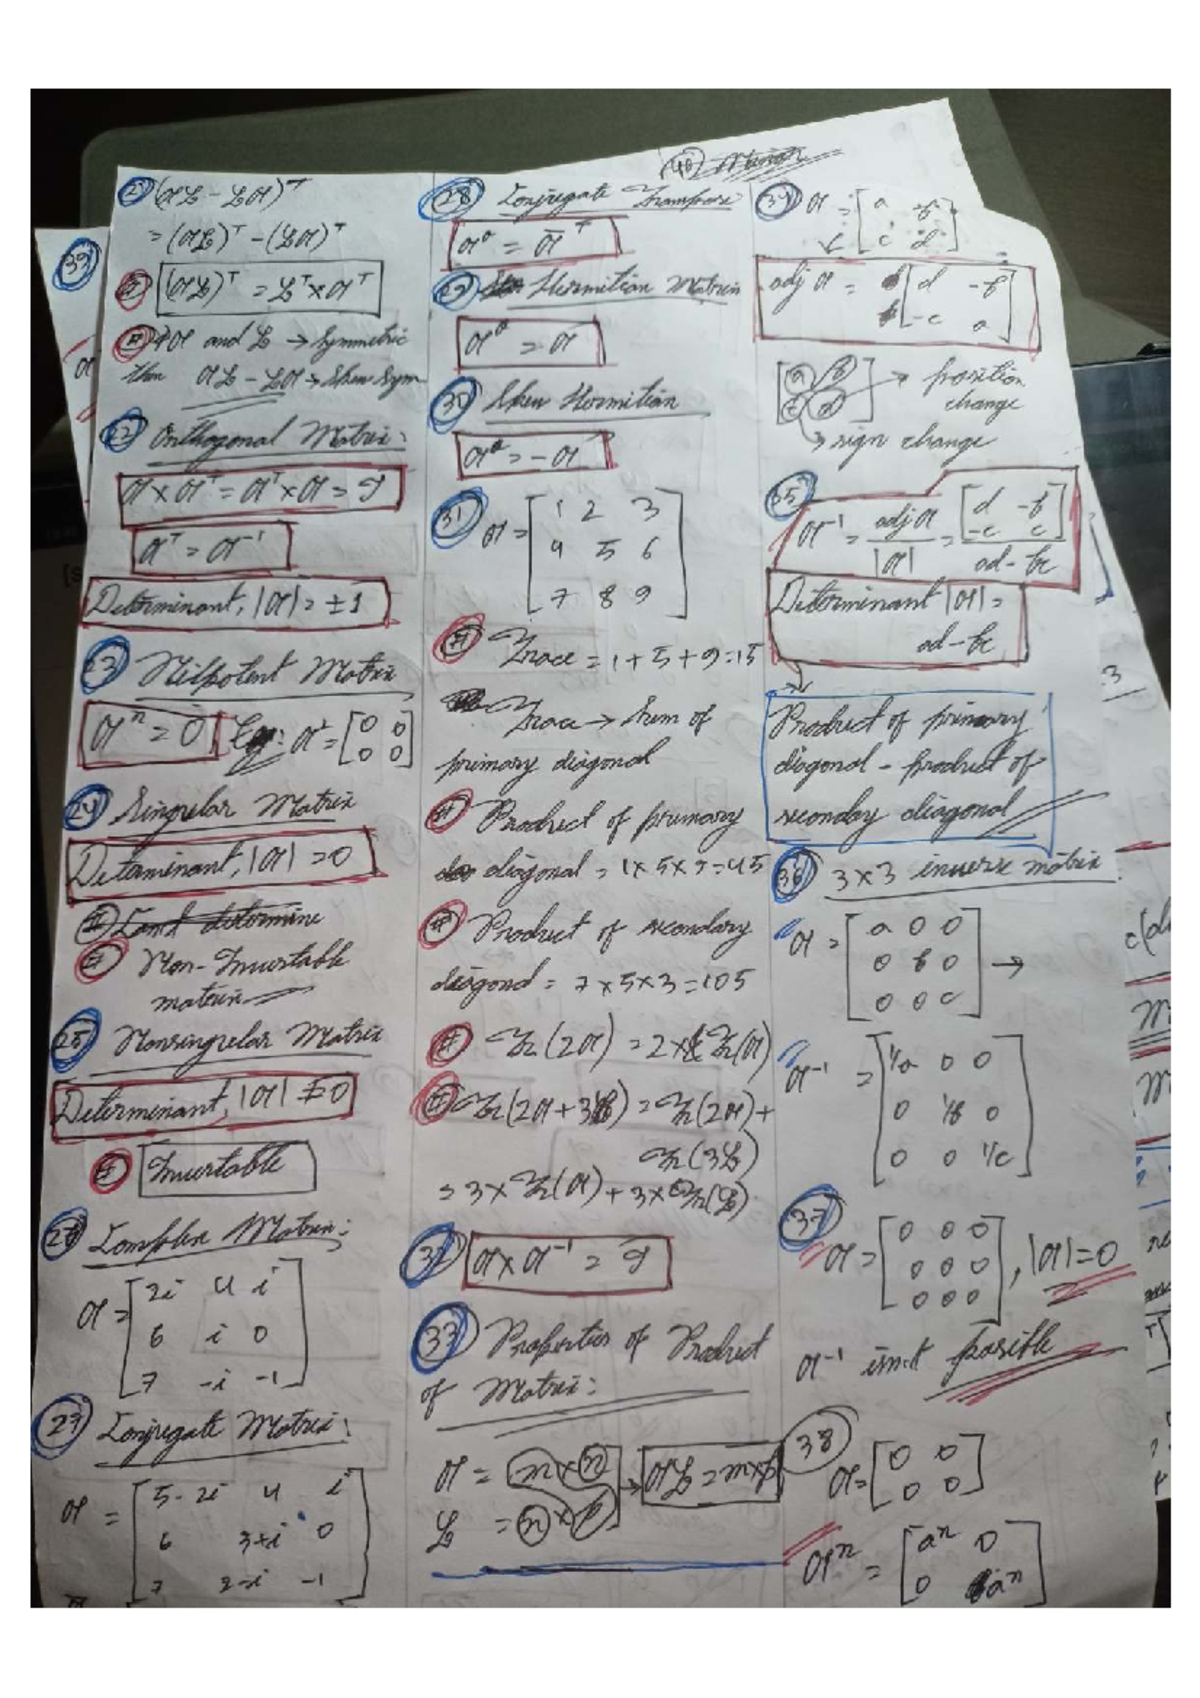 21 (AB - BA)^T
= (AB)^T - (BA)^T
# (AB)^T = B^T × A^T
# A and B → Symmetric
then AB - BA → Skew Sym
22 Orthogonal Matrix:
A × A^T = A^T × A = I
A^T = A^-1
Determinant, |A| = ±1
23 Nilpotent Matrix
A^n = 0 Eg: A^2 = [0 0
0 0]
24 Singular Matrix
Determinant, |A| = 0
# Non-Invertable
matrix
25 Nonsingular Matrix
Determinant, |A| ≠ 0
# Invertable
26 Complex Matrix:
A = [2i 4 i
6 i 0
7 -i -1]
27 Conjugate Matrix:
A = [5-2i 4 i
6 3+i 0
7 2-i -1]
28 Conjugate Transpose
A^θ = Ā^T
29 Hermitian Matrix
A^θ = A
30 Skew Hermitian
A^θ = -A
31 A = [1 2 3
4 5 6
7 8 9]
# Trace = 1 + 5 + 9 = 15
Trace → Sum of
primary diagonal
# Product of primary
diagonal = 1 × 5 × 9 = 45
# Product of secondary
diagond = 7 × 5 × 3 = 105
# Tr(2A) = 2 × Tr(A)
# Tr(2A + 3B) = Tr(2A) +
Tr(3B)
= 3 × Tr(A) + 3 × Tr(B)
32 A × A^-1 = I
33 Properties of Product
of Matrix:
A = m × n → AB = m×p
B = n × p
40 Minor
34 A = [a b
c d]
adj A = [d -b
-c a]
[a b
c d] → position
change
→ sign change
35 A^-1 = adj A / |A| = [d -b
-c c] / ad - bc
Determinant |A| =
ad - bc
Product of primary
diagonal - product of
seconday diagonal
36 3×3 inverse matrix
A = [a 0 0
0 b 0
0 0 c] →
A^-1 = [1/a 0 0
0 1/b 0
0 0 1/c]
37 A = [0 0 0
0 0 0
0 0 0], |A| = 0
A^-1 isn't posible
38 A = [0 0
0 0]
A^n = [a^n 0
0 a^n]
39